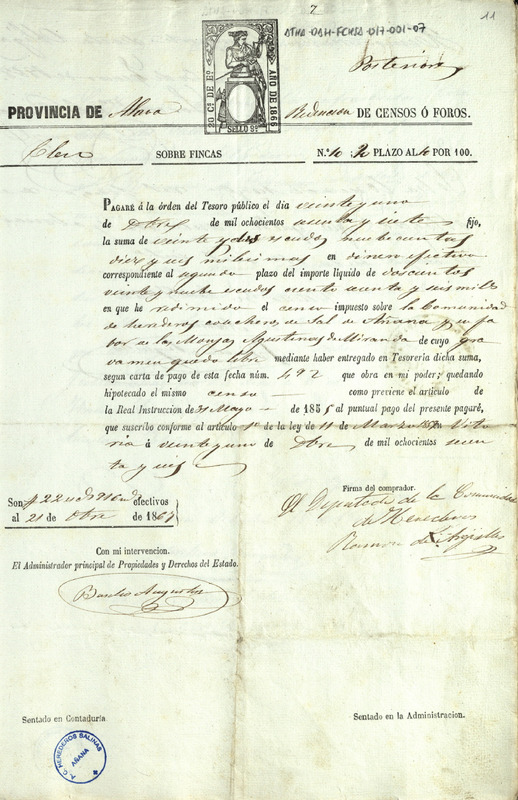 7
11
ATHA-DAH-FCHSA-017-001-07
Posterior
20 Cs DE Eo
AÑO DE 1866
SELLO 9º
PROVINCIA DE Alava
Redencion DE CENSOS Ó FOROS.
Clero
SOBRE FINCAS
N.º 10 2º PLAZO AL 10 POR 100.
PAGARÉ á la órden del Tesoro público el dia veinte y uno
de Dbre de mil ochocientos sesenta y siete fijo,
la suma de veinte y dos escudos nuebecientas
diez y seis milesimas en dinero efectivo
correspondiente al segundo plazo del importe líquido de doscientos
veinte y nuebe escudos ciento sesenta y seis mils
en que he redimido el censo impuesto sobre la Comunidad
de herederos cosecheros de Sal de Añana y a fa
bor de las Monjas Agustinas de Miranda de cuyo gra
vamen quedó libre mediante haber entregado en Tesorería dicha suma,
segun carta de pago de esta fecha núm. 492 que obra en mi poder; quedando
hipotecado el mismo censo como previene el artículo de
la Real Instruccion de 31 Mayo de 1855 al puntual pago del presente pagaré,
que suscribo conforme al artículo 1º de la ley de 11 de Marzo 1859 Vito
ria á veinte y uno de Dbre de mil ochocientos sesen
ta y seis
Son efectivos
al 21 de Dbre de 1867
Firma del comprador.
El Diputado de la Comunidad
de Herederos
Ramon de
Con mi intervencion.
El Administrador principal de Propiedades y Derechos del Estado.
Sentado en Contaduría
Sentado en la Administracion.
A. C. HEREDEROS SALINAS
AÑANA